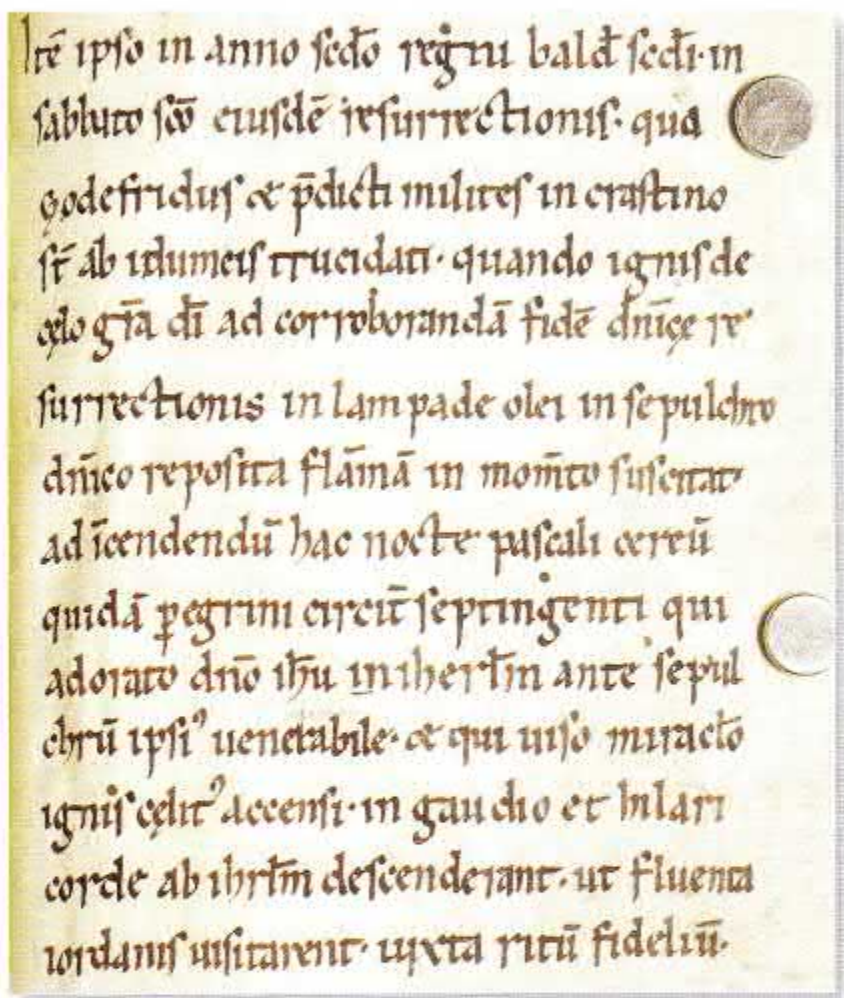 Itē ipso in anno scdō regni bald̄ scdi· in
sabbato scō eiusdē resurrectionis· qua
godefridus & p̄dicti milites in crastino
st̄ ab idumeis trucidati· quando ignis de
cęlo gr̄a dī ad corroborandā fidē dn̄icę re
surrectionis in lampade olei in sepulchro
dn̄ico reposita flāmā in mom̄to suscitat·
ad īcendendū hac nocte pascali cereū
quidā ꝑegrini circit̄ septingenti qui
adorato dn̄o ih̄u in iherl̄m ante sepul
chrū ipsi⁹ uenerabile· & qui uiso miraclō
ignis cęlit⁹ accensi· in gaudio et hilari
corde ab ihrl̄m descenderant· ut fluenta
iordanis uisitarent· iuxta ritū fideliū·